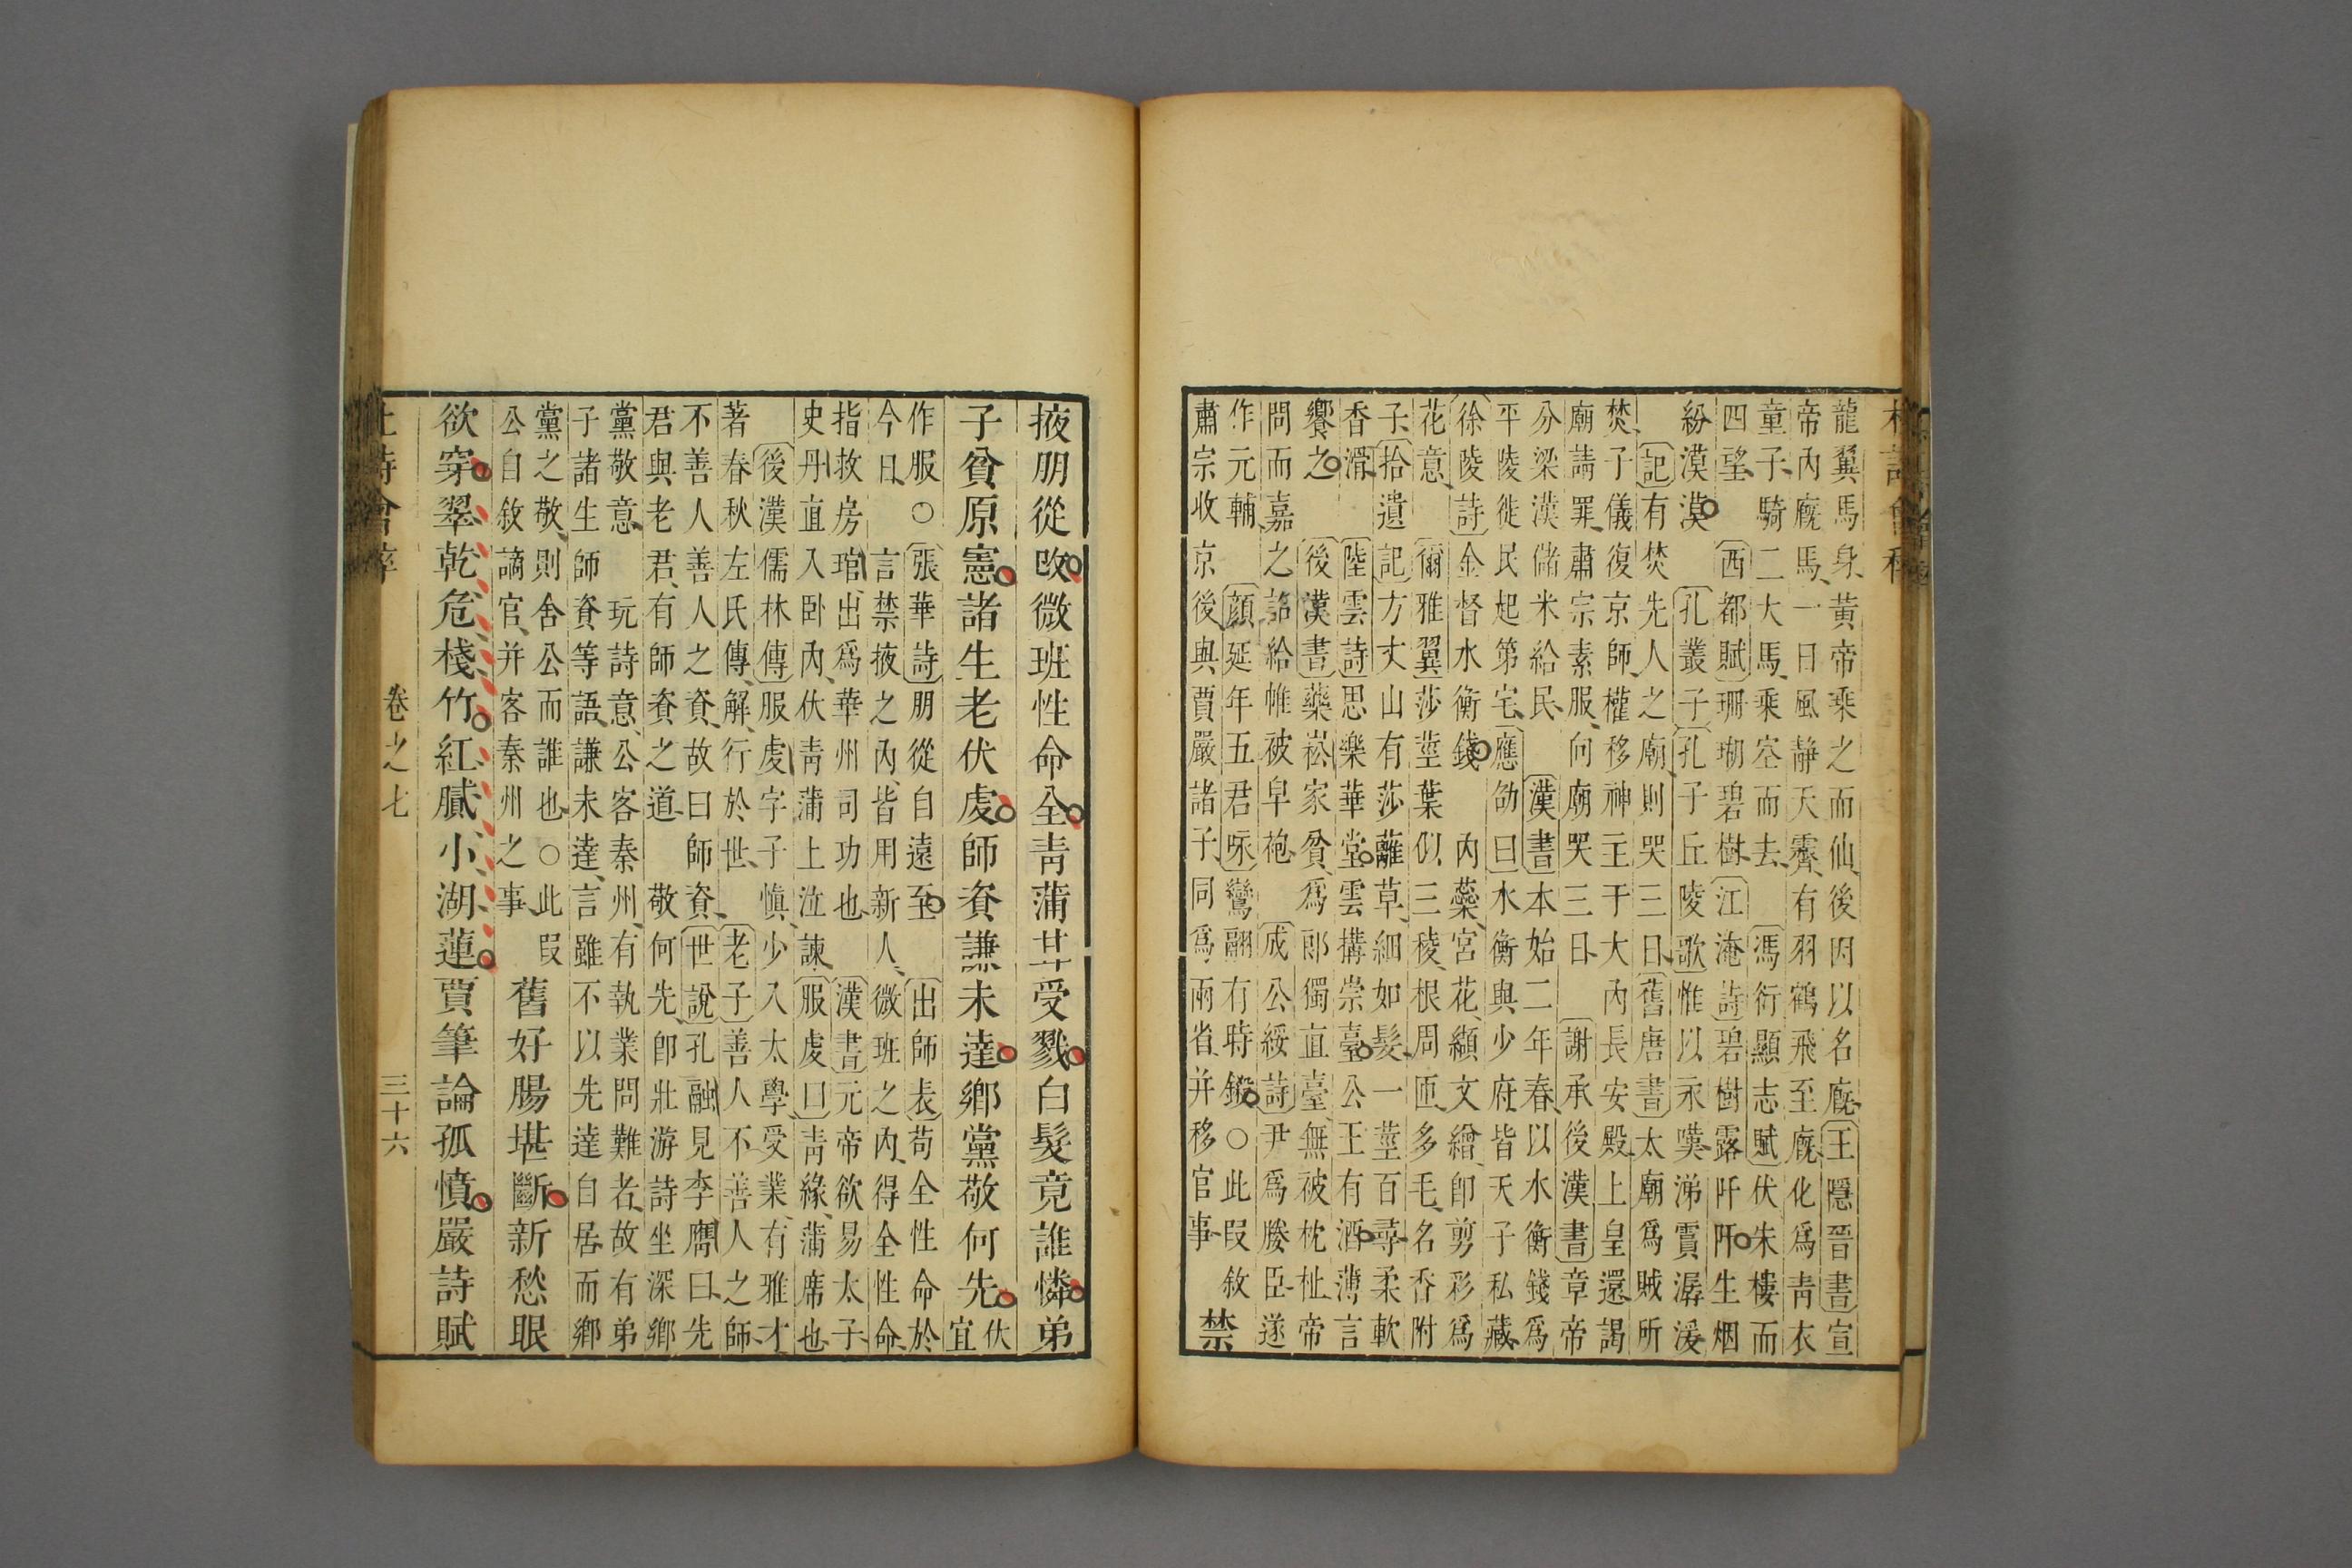 龍翼馬身黃帝乘之而仙後因以名廐王隱晉書宣
帝內廐馬一日風靜天霽有羽鶴飛至廐化爲靑衣
童子騎二大馬乘空而去馮衍顯志賦伏朱樓而
四望西都賦珊瑚碧樹江淹詩碧樹露阡阡生烟
紛漠漠孔叢子孔子丘陵歌惟以永嘆涕霣潺湲
記有焚先人之廟則哭三日舊唐書太廟爲賊所
焚子儀復京師權移神主于大內長安殿上皇還謁
廟請罪肅宗素服向廟哭三日謝承後漢書章帝
分梁漢儲米給民漢書本始二年春以水衡錢爲
平陵徙民起第宅應劭曰水衡與少府皆天子私藏
徐陵詩金督水衡錢內蘂宮花纈文繒卽剪彩爲
花意爾雅翼莎莖葉似三稜根周匝多毛名香附
子拾遺記方丈山有莎蘺草細如髮一莖百尋柔軟
香滑陸雲詩思樂華堂雲搆崇臺公王有酒薄言
饗之後漢書藥崧家貧爲郎獨直臺無被枕杫帝
問而嘉之詔給帷被皁袍成公綏詩尹爲媵臣遂
作元輔顔延年五君咏鸞翮有時鎩○此叚敘
肅宗收京後與賈嚴諸子同爲兩省并移官事禁
掖朋從改微班性命全靑蒲甘受戮白髮竟誰憐弟
子貧原憲諸生老伏虔師資謙未達鄕黨敬何先伏宜
作服○張華詩朋從自遠至出師表苟全性命於
今日言禁掖之內皆用新人微班之內得全性命
指救房琯出爲華州司功也漢書元帝欲易太子
史丹直入卧內伏靑蒲上泣諫服虔曰靑緣蒲席也
後漢儒林傳服虔字子愼少入太學受業有雅才
著春秋左氏傳解行於世老子善人不善人之師
不善人善人之資故曰師資世說孔融見李膺曰先
君與老君有師資之道敬何先卽壯游詩坐深鄕
黨敬意玩詩意公客秦州有執業問難者故有弟
子諸生師資等語謙未達言雖不以先達自居而鄕
黨之敬則舍公而誰也○此叚
公自敘謫官并客秦州之事舊好腸堪斷新愁眼
欲穿翠乾危棧竹紅膩小湖蓮賈筆論孤憤嚴詩賦
卷之七 三十六